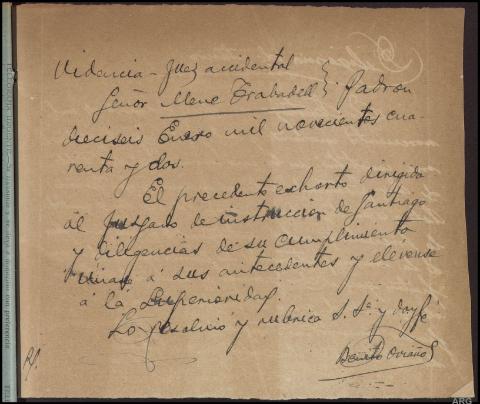 Videncia - Juez accidental
Señor Mene Trabadell } Padron
dieciseis Enero mil novecientos cua-
renta y dos.
El precedente exhorto dirigido
al Juzgado de instruccion de Santiago
y diligencias de su cumplimiento
unase á sus antecedentes y elévense
á la Superioridad.
Lo resolvió y rubrica S. Sª y doy fé
Benito
ARG